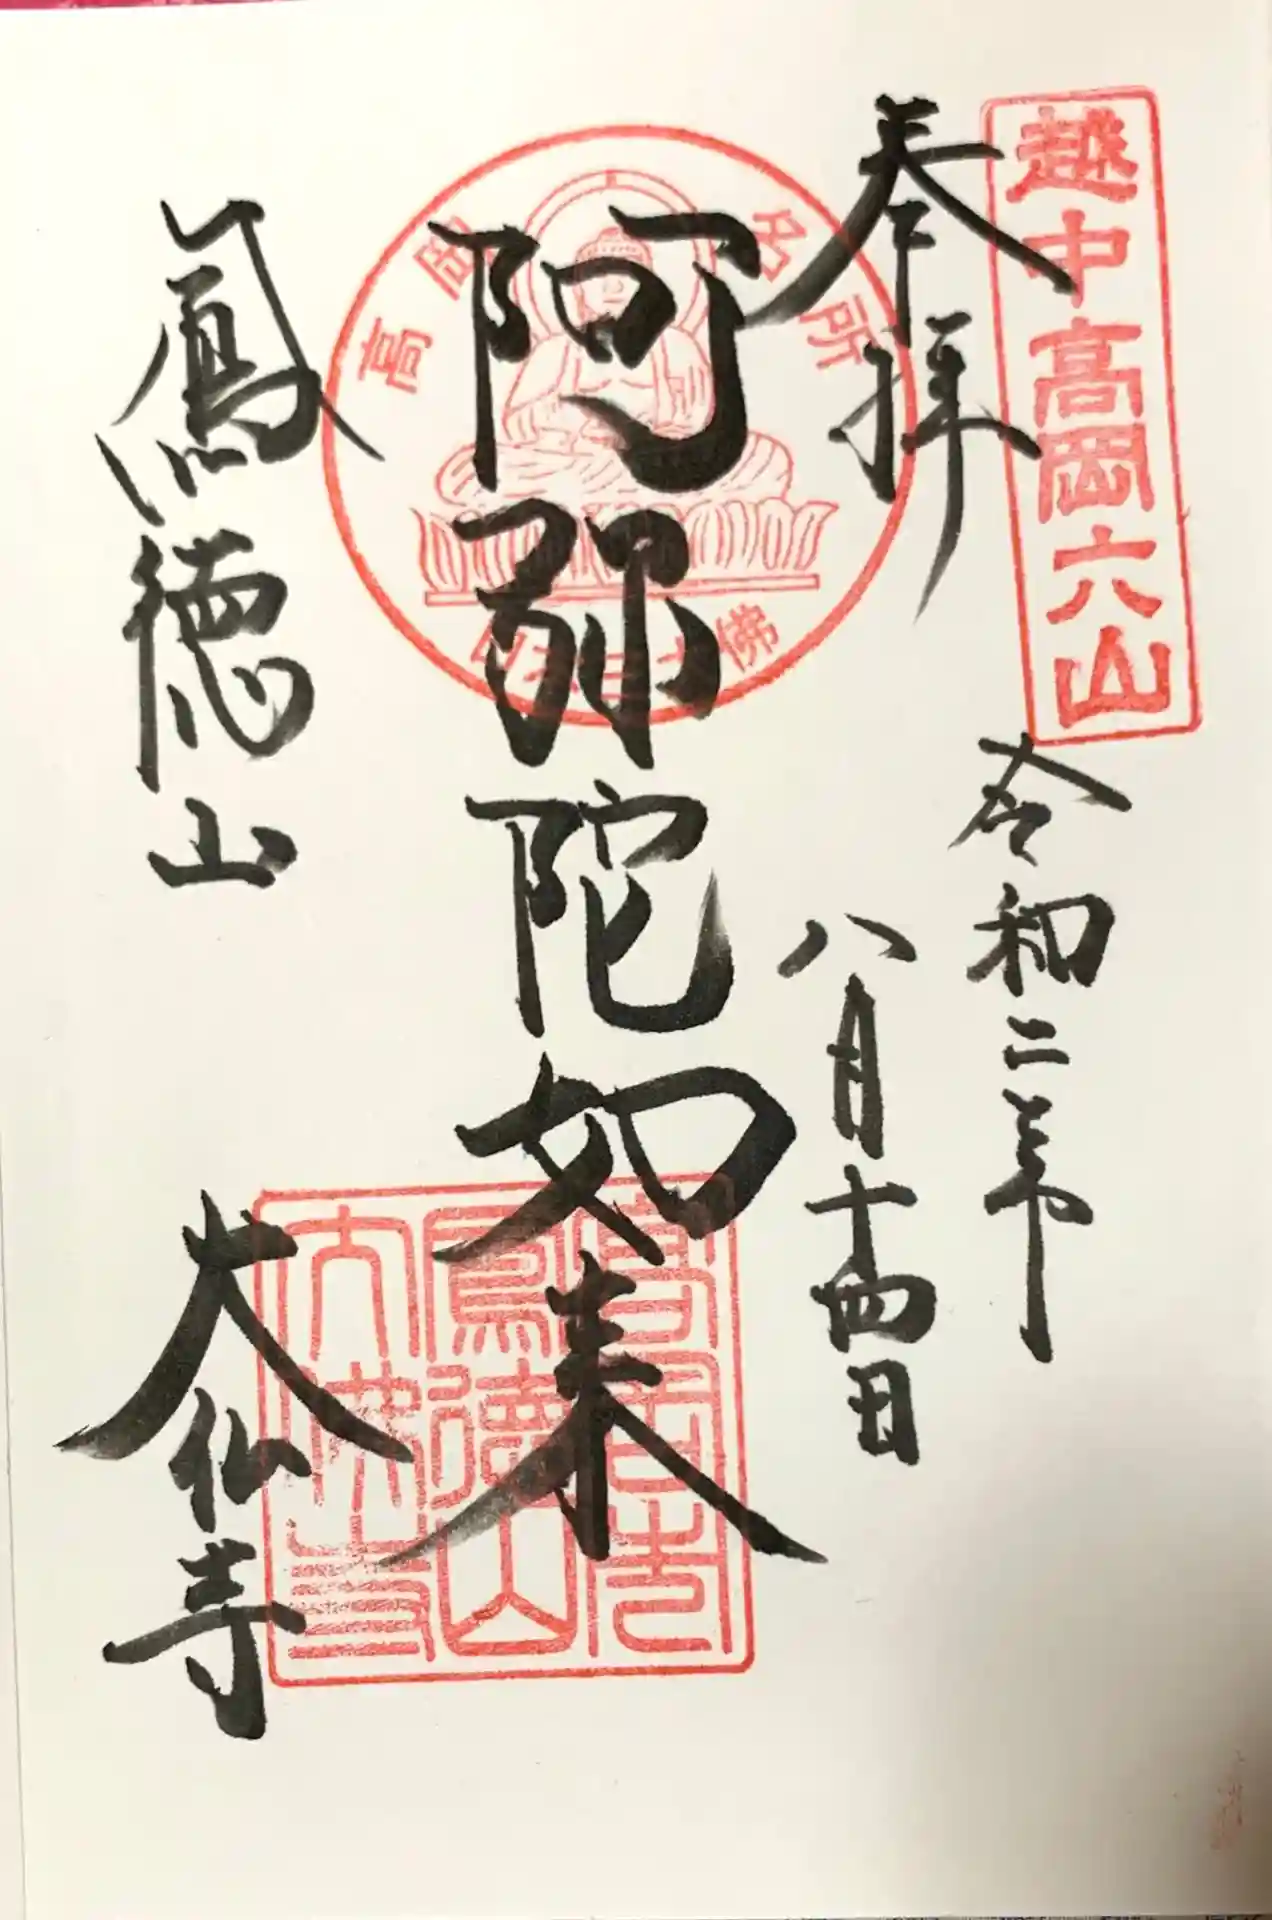 越中高岡六山
奉拝
令和二年
八月十四日
高岡名所
日本三大佛
阿弥陀如来
鳳徳山
大仏寺
鳳徳山
大佛寺